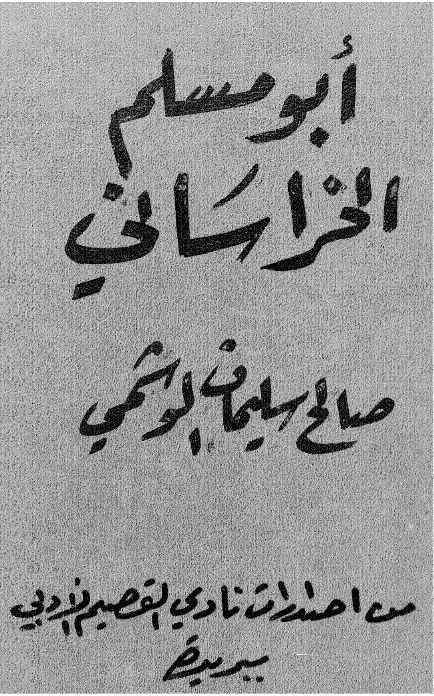 أبو مسلم
الخراساني
صالح سليمان الوشمي
من اصدارات نادي القصيم الأدبي
ببريدة